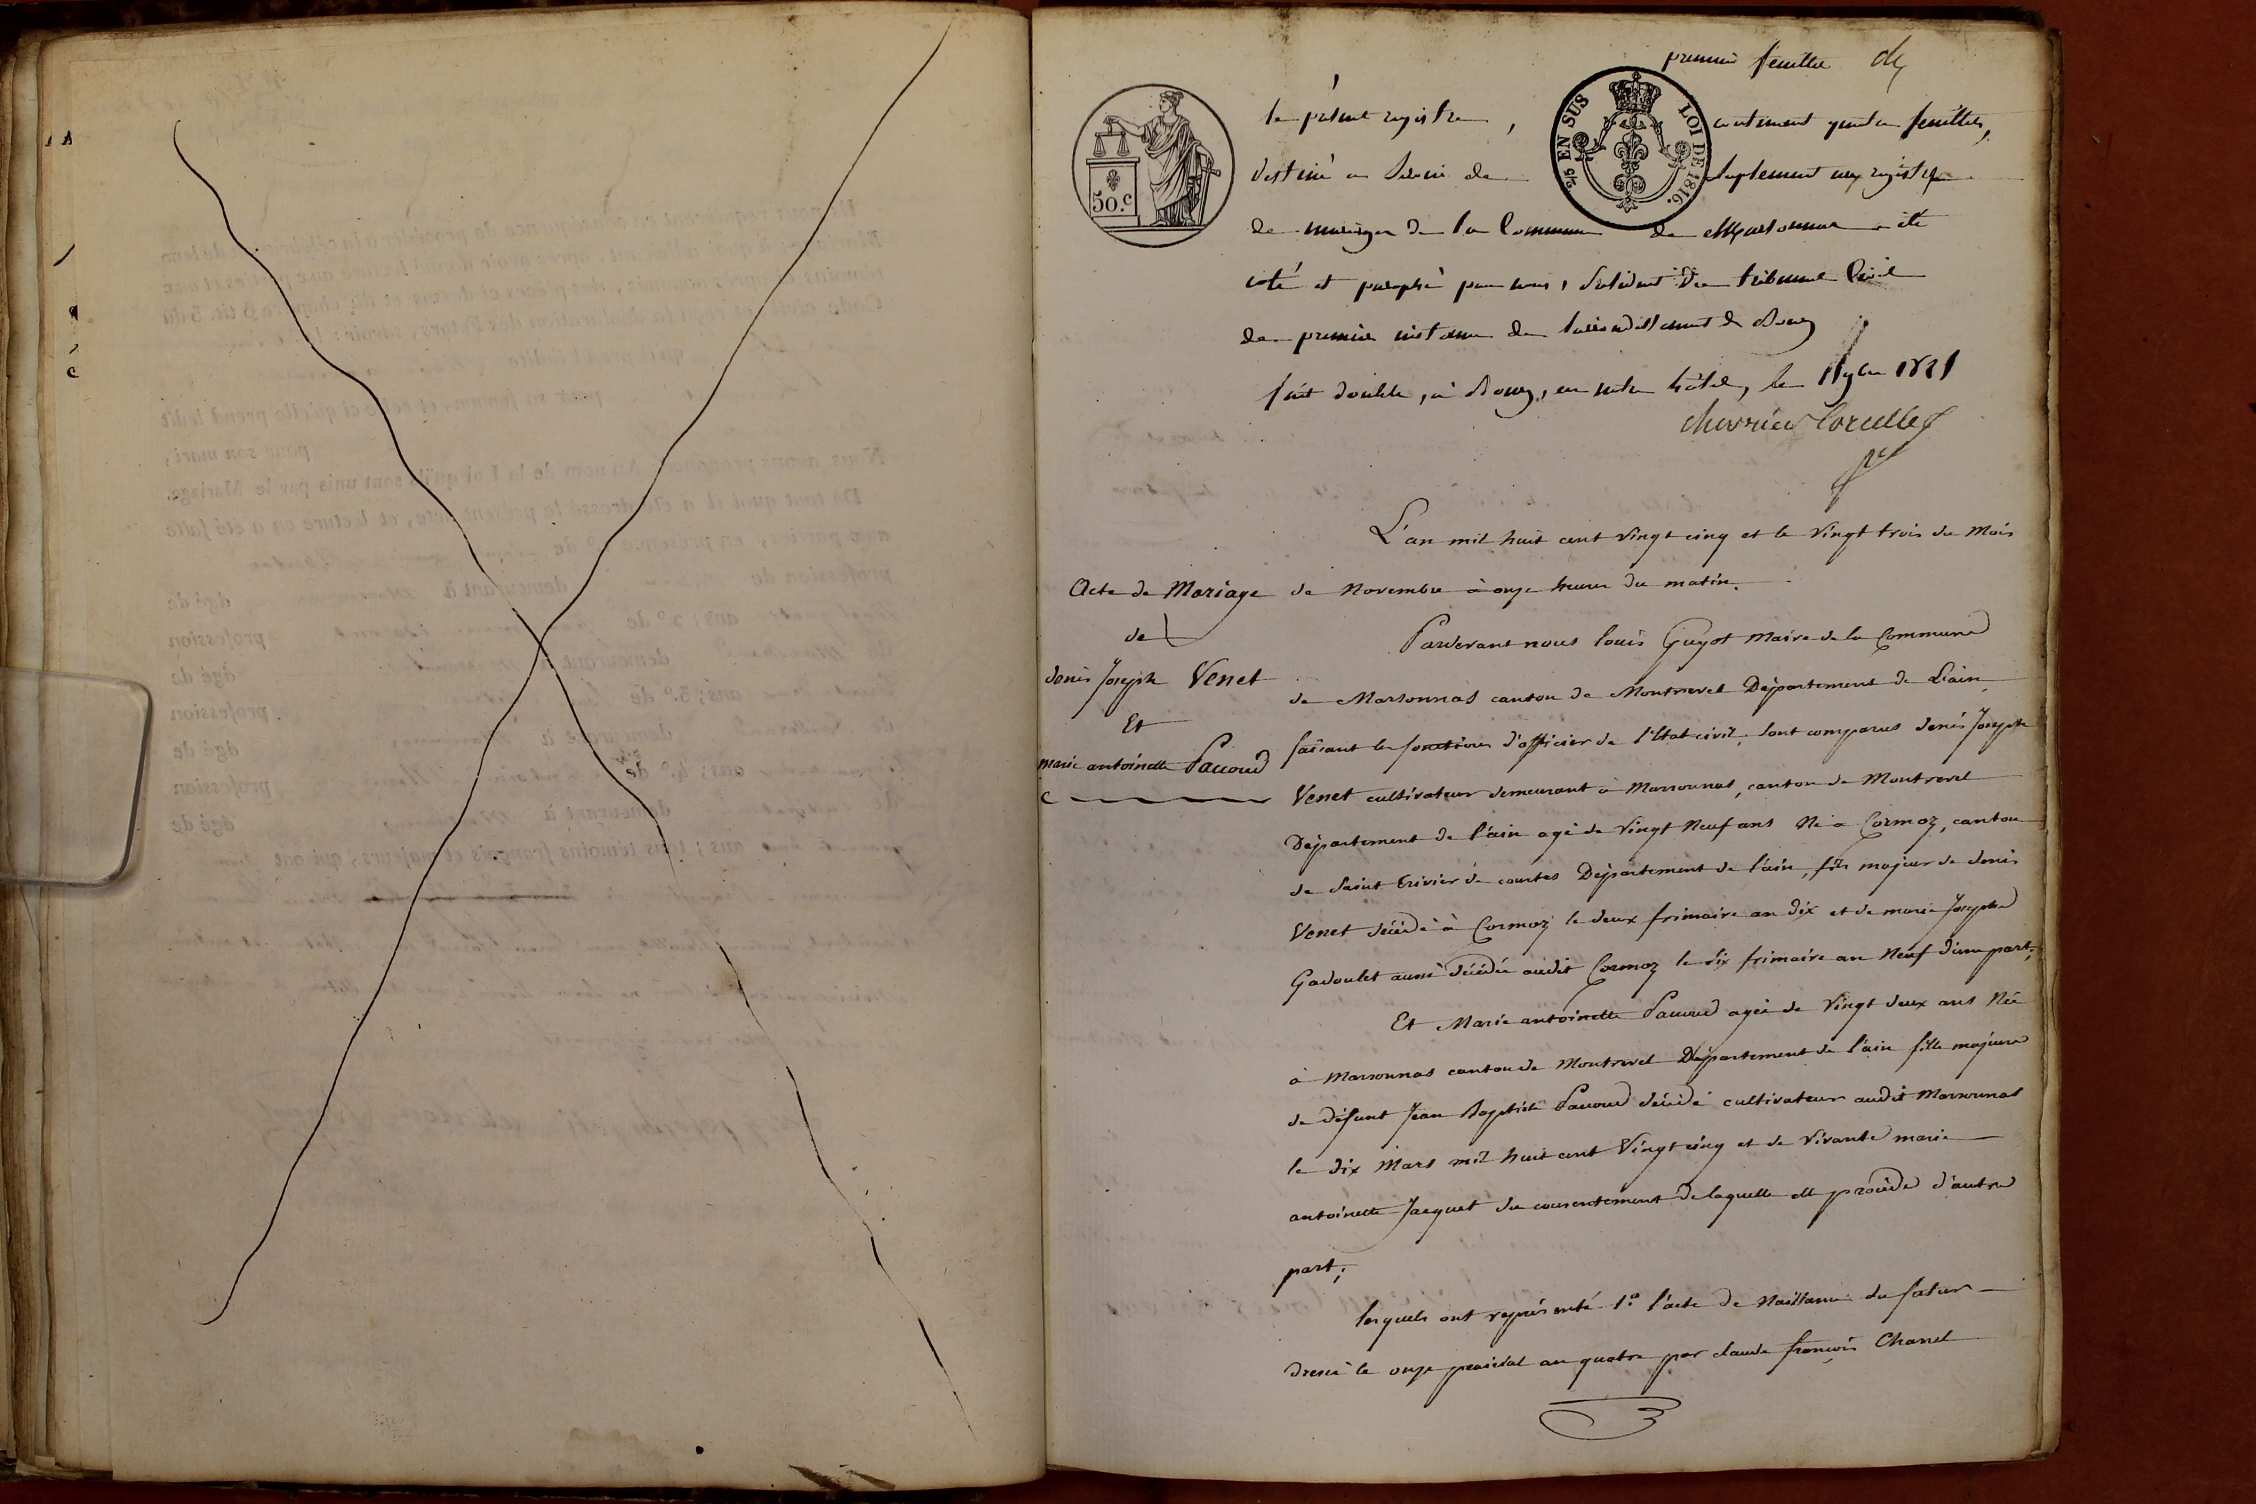 premier feuillet
50.c
2/5 EN SUS LOI DE 1816.
le présent registre, contenant quatre feuillets,
destiné à servir de suplement aux registres
de mariage de la Commune de Marsonnas a été
coté et paraphé par nous, Président du tribunal Civil
de premiere instance de l'arrondissement de Bourg
fait double, à Bourg, en notre hôtel, le
Chevrier Corcelles
L'an mil huit cent vingt cinq et le vingt trois du Mois
de Novembre à onze heures du matin.
Acte de Mariage
de
denis Joseph Venet
Et
marie antoinette Pauoud
Pardevant nous louis Guyot Maire de la Commune
de Marsonnas canton de Montrevel Département de L'ain
faisant les fonctions d'officier de l'Etat civil, sont comparus denis Joseph
Venet cultivateur demeurant à Marsonnas, canton de Montrevel
Département de l'ain agé de vingt Neuf ans Né à Cormoz, canton
de Saint trivier de courtes Département de l'ain, fils majeur de denis
Venet décédé à Cormoz le deux frimaire an dix et de marie Josephe
Gadoulet aussi décédée audit Cormoz le six frimaire an Neuf d'une part;
Et Marie antoinette Pauoud agée de vingt deux ans Née
à Marsonnas canton de Montrevel Département de l'ain fille majeure
de défunt Jean Baptiste Pauoud décédé cultivateur audit Marsonnas
le dix Mars mil huit cent Vingt cinq et de vivante marie
antoinette Jacquet du consentement de laquelle elle procède d'autre
part;
lesquels ont représenté 1.o l'acte de Naissance du futur
dressé le onze prairial an quatre par claude françois Chanel